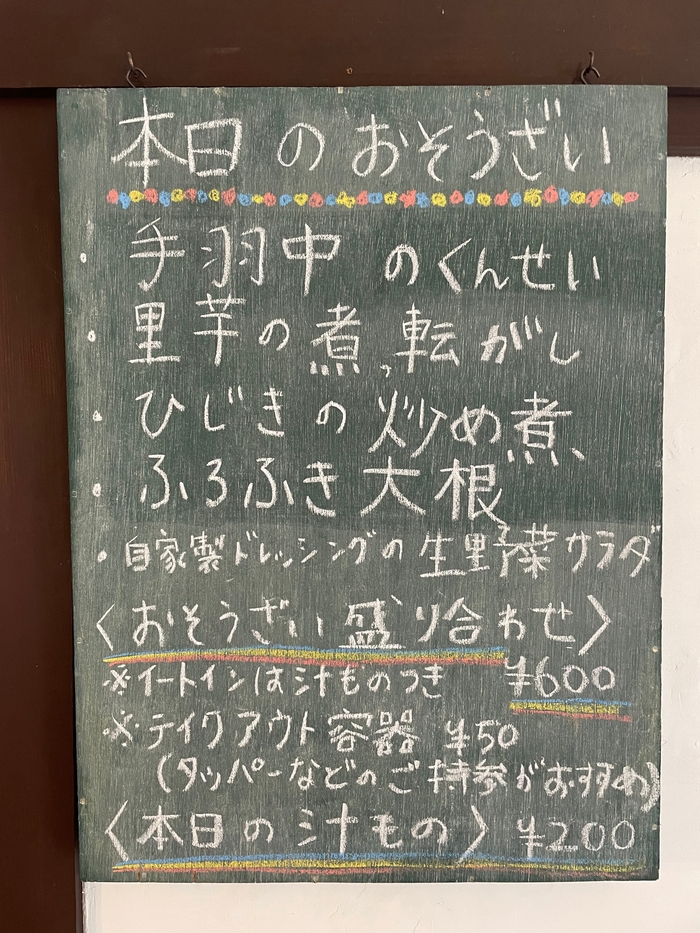 本日のおそうざい
・手羽中のくんせい
・里芋の煮転がし
・ひじきの炒め煮
・ふろふき大根
・自家製ドレッシングの生野菜サラダ
〈おそうざい盛り合わせ〉
※イートインは汁ものつき ¥600
※テイクアウト容器 ¥50
(タッパーなどのご持参がおすすめ)
〈本日の汁もの〉 ¥200